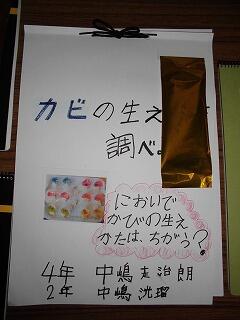 カビの生え
調べ
においで
かびの生え
かたは、ちがう?
4年 中嶋 治朗
2年 中嶋